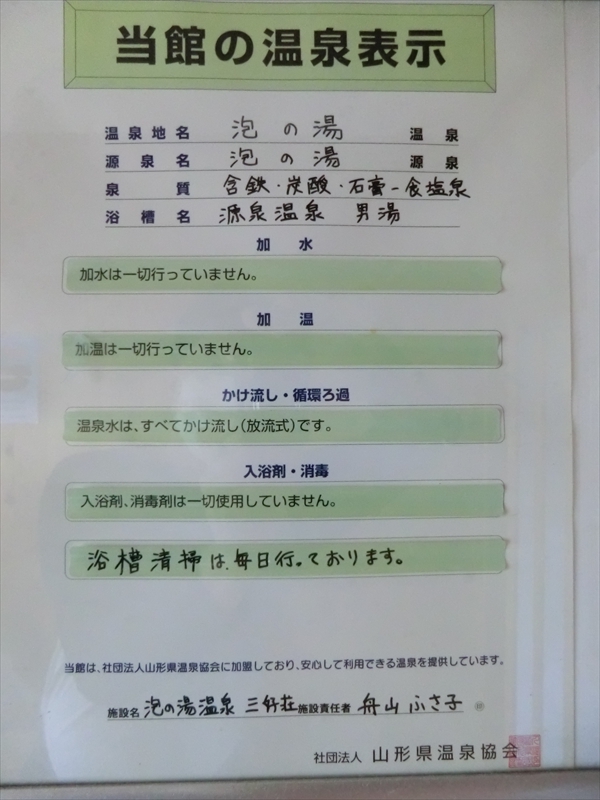 当館の温泉表示
温泉地名 泡の湯 温泉
源泉名 泡の湯 源泉
泉質 含鉄・炭酸・石膏-食塩泉
浴槽名 源泉温泉 男湯
加水
加水は一切行っていません。
加温
加温は一切行っていません。
かけ流し・循環ろ過
温泉水は、すべてかけ流し(放流式)です。
入浴剤・消毒
入浴剤、消毒剤は一切使用していません。
浴槽清掃は、毎日行っております。
当館は、社団法人山形県温泉協会に加盟しており、安心して利用できる温泉を提供しています。
施設名 泡の湯温泉 三好荘 施設責任者 舟山ふさ子
社団法人 山形県温泉協会